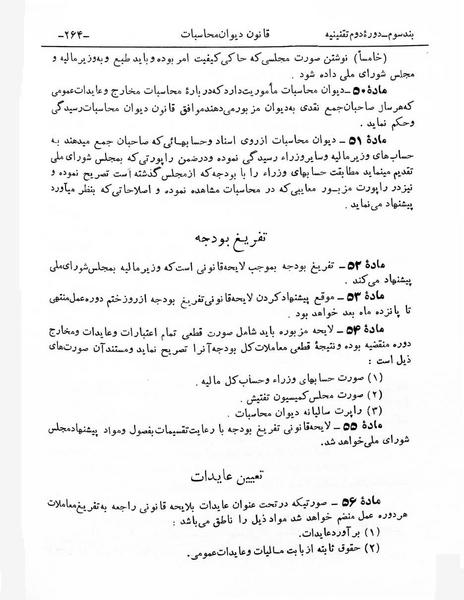 بند سوم ـ دورهٔ دوم تقنینیه قانون دیوان محاسبات -۲۶۴-
(خامسا) نوشتن صورت مجلسی که حاکی کیفیت امر بوده و باید طبع و به وزیر مالیه و
مجلس شورای ملی داده شود .
مادهٔ ۵۰ ـ دیوان محاسبات مأموریت دارد که در بارهٔ محاسبات مخارج و عایدات عمومی
که هر سال صاحبان جمع نقدی به دیوان مزبور می دهند موافق قانون دیوان محاسبات رسیدگی
و حکم نماید .
مادهٔ ۵۱ ـ دیوان محاسبات از روی اسناد و حسابهائی که صاحبان جمع میدهند به
حساب های وزیر مالیه و سایر وزراء رسیدگی نموده و در ضمن راپورتی که بمجلس شورای ملی
تقدیم مینماید مطابقت حسابهای وزراء را با بودجه که از مجلس گذشته است تصریح نموده و
نیز در راپورت مزبور معایبی که در محاسبات مشاهده نموده و اصلاحاتی که بنظر میآورد
پیشنهاد می نماید .
تفریغ بودجه
مادهٔ ۵۲ ـ تفریغ بودجه بموجب لایحه قانونی است که وزیر مالیه بمجلس شورای ملی
پیشنهاد می کند .
مادهٔ ۵۳ ـ موقع پیشنهاد کردن لایحه قانونی تفریغ بودجه از روز ختم دوره عمل منتهی
تا پانزده ماه بعد خواهد بود .
مادهٔ ۵۴ ـ لایحه مزبوره باید شامل صورت قطعی تمام اعتبارات و عایدات و مخارج
دوره منقضیه بوده و نتیجهٔ قطعی معاملات کل بودجه آنرا تصریح نماید و مستند آن صورت های
ذیل است :
(۱) صورت حسابهای وزراء و حساب کل مالیه .
(۲) صورت مجلس کمیسیون تفتیش .
(۳) راپرت سالیانه دیوان محاسبات .
مادهٔ ۵۵ ـ لایحه قانونی تفریغ بودجه با رعایت تقسیمات بفصول و مواد پیشنهاد مجلس
شورای ملی خواهد شد.
تعیین عایدات
مادهٔ ۵۶ ـ صورتیکه در تحت عنوان عایدات بلایحه قانونی راجعه به تفریغ معاملات
هر دوره عمل منضم خواهد شد مواد ذیل را ناطق می باشد :
(۱) برآورد عایدات.
(۲) حقوق ثابته از بابت مالیات و عایدات عمومی.